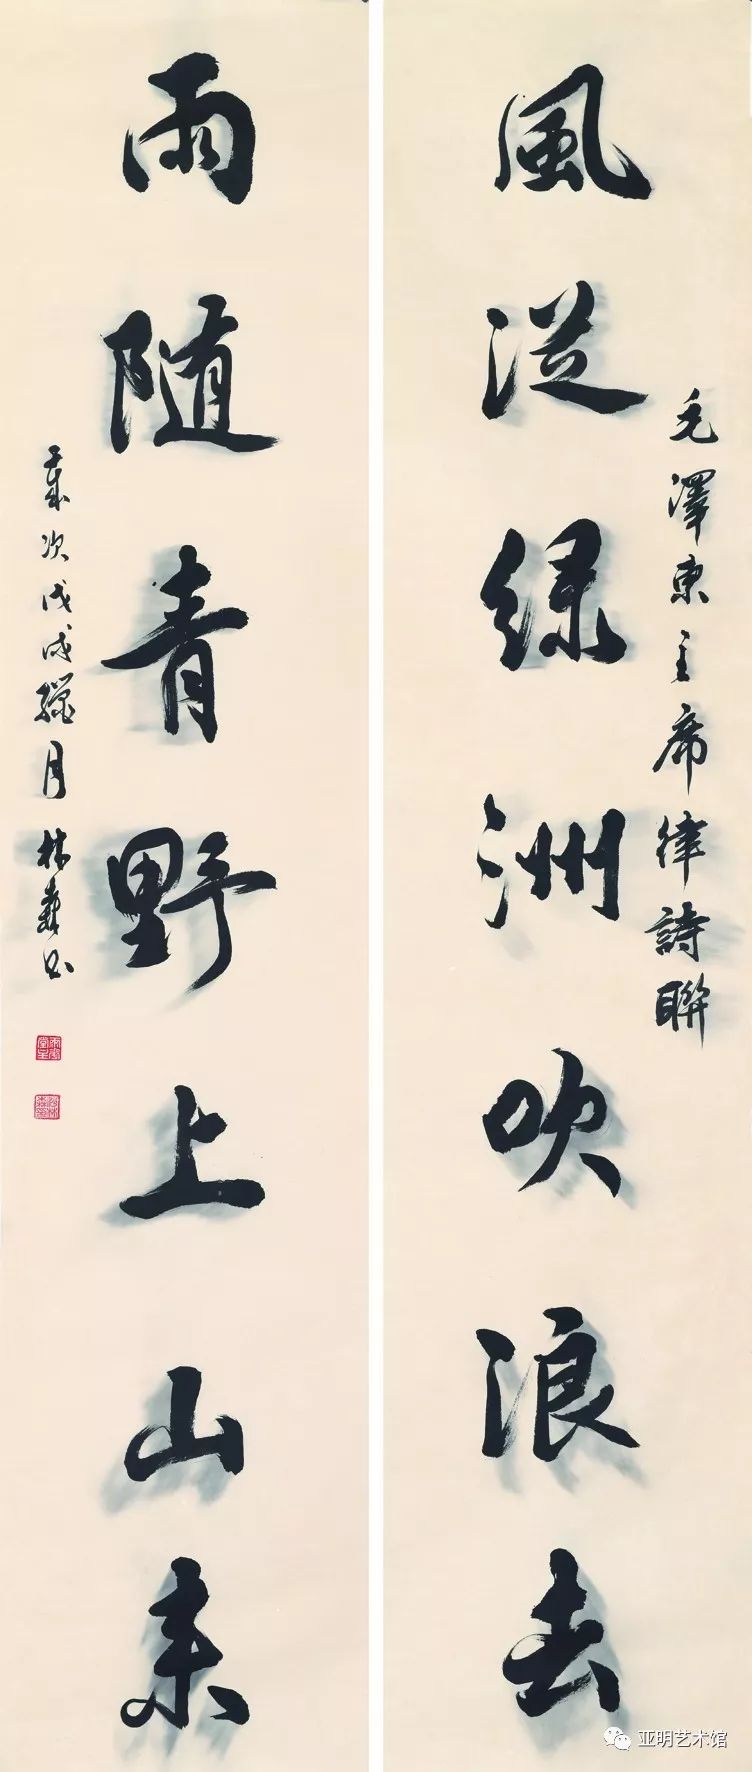 毛澤東主席律詩聯
風從緑洲吹浪去
雨随青野上山来
歲次戊戌臘月林森书
亚明艺术馆